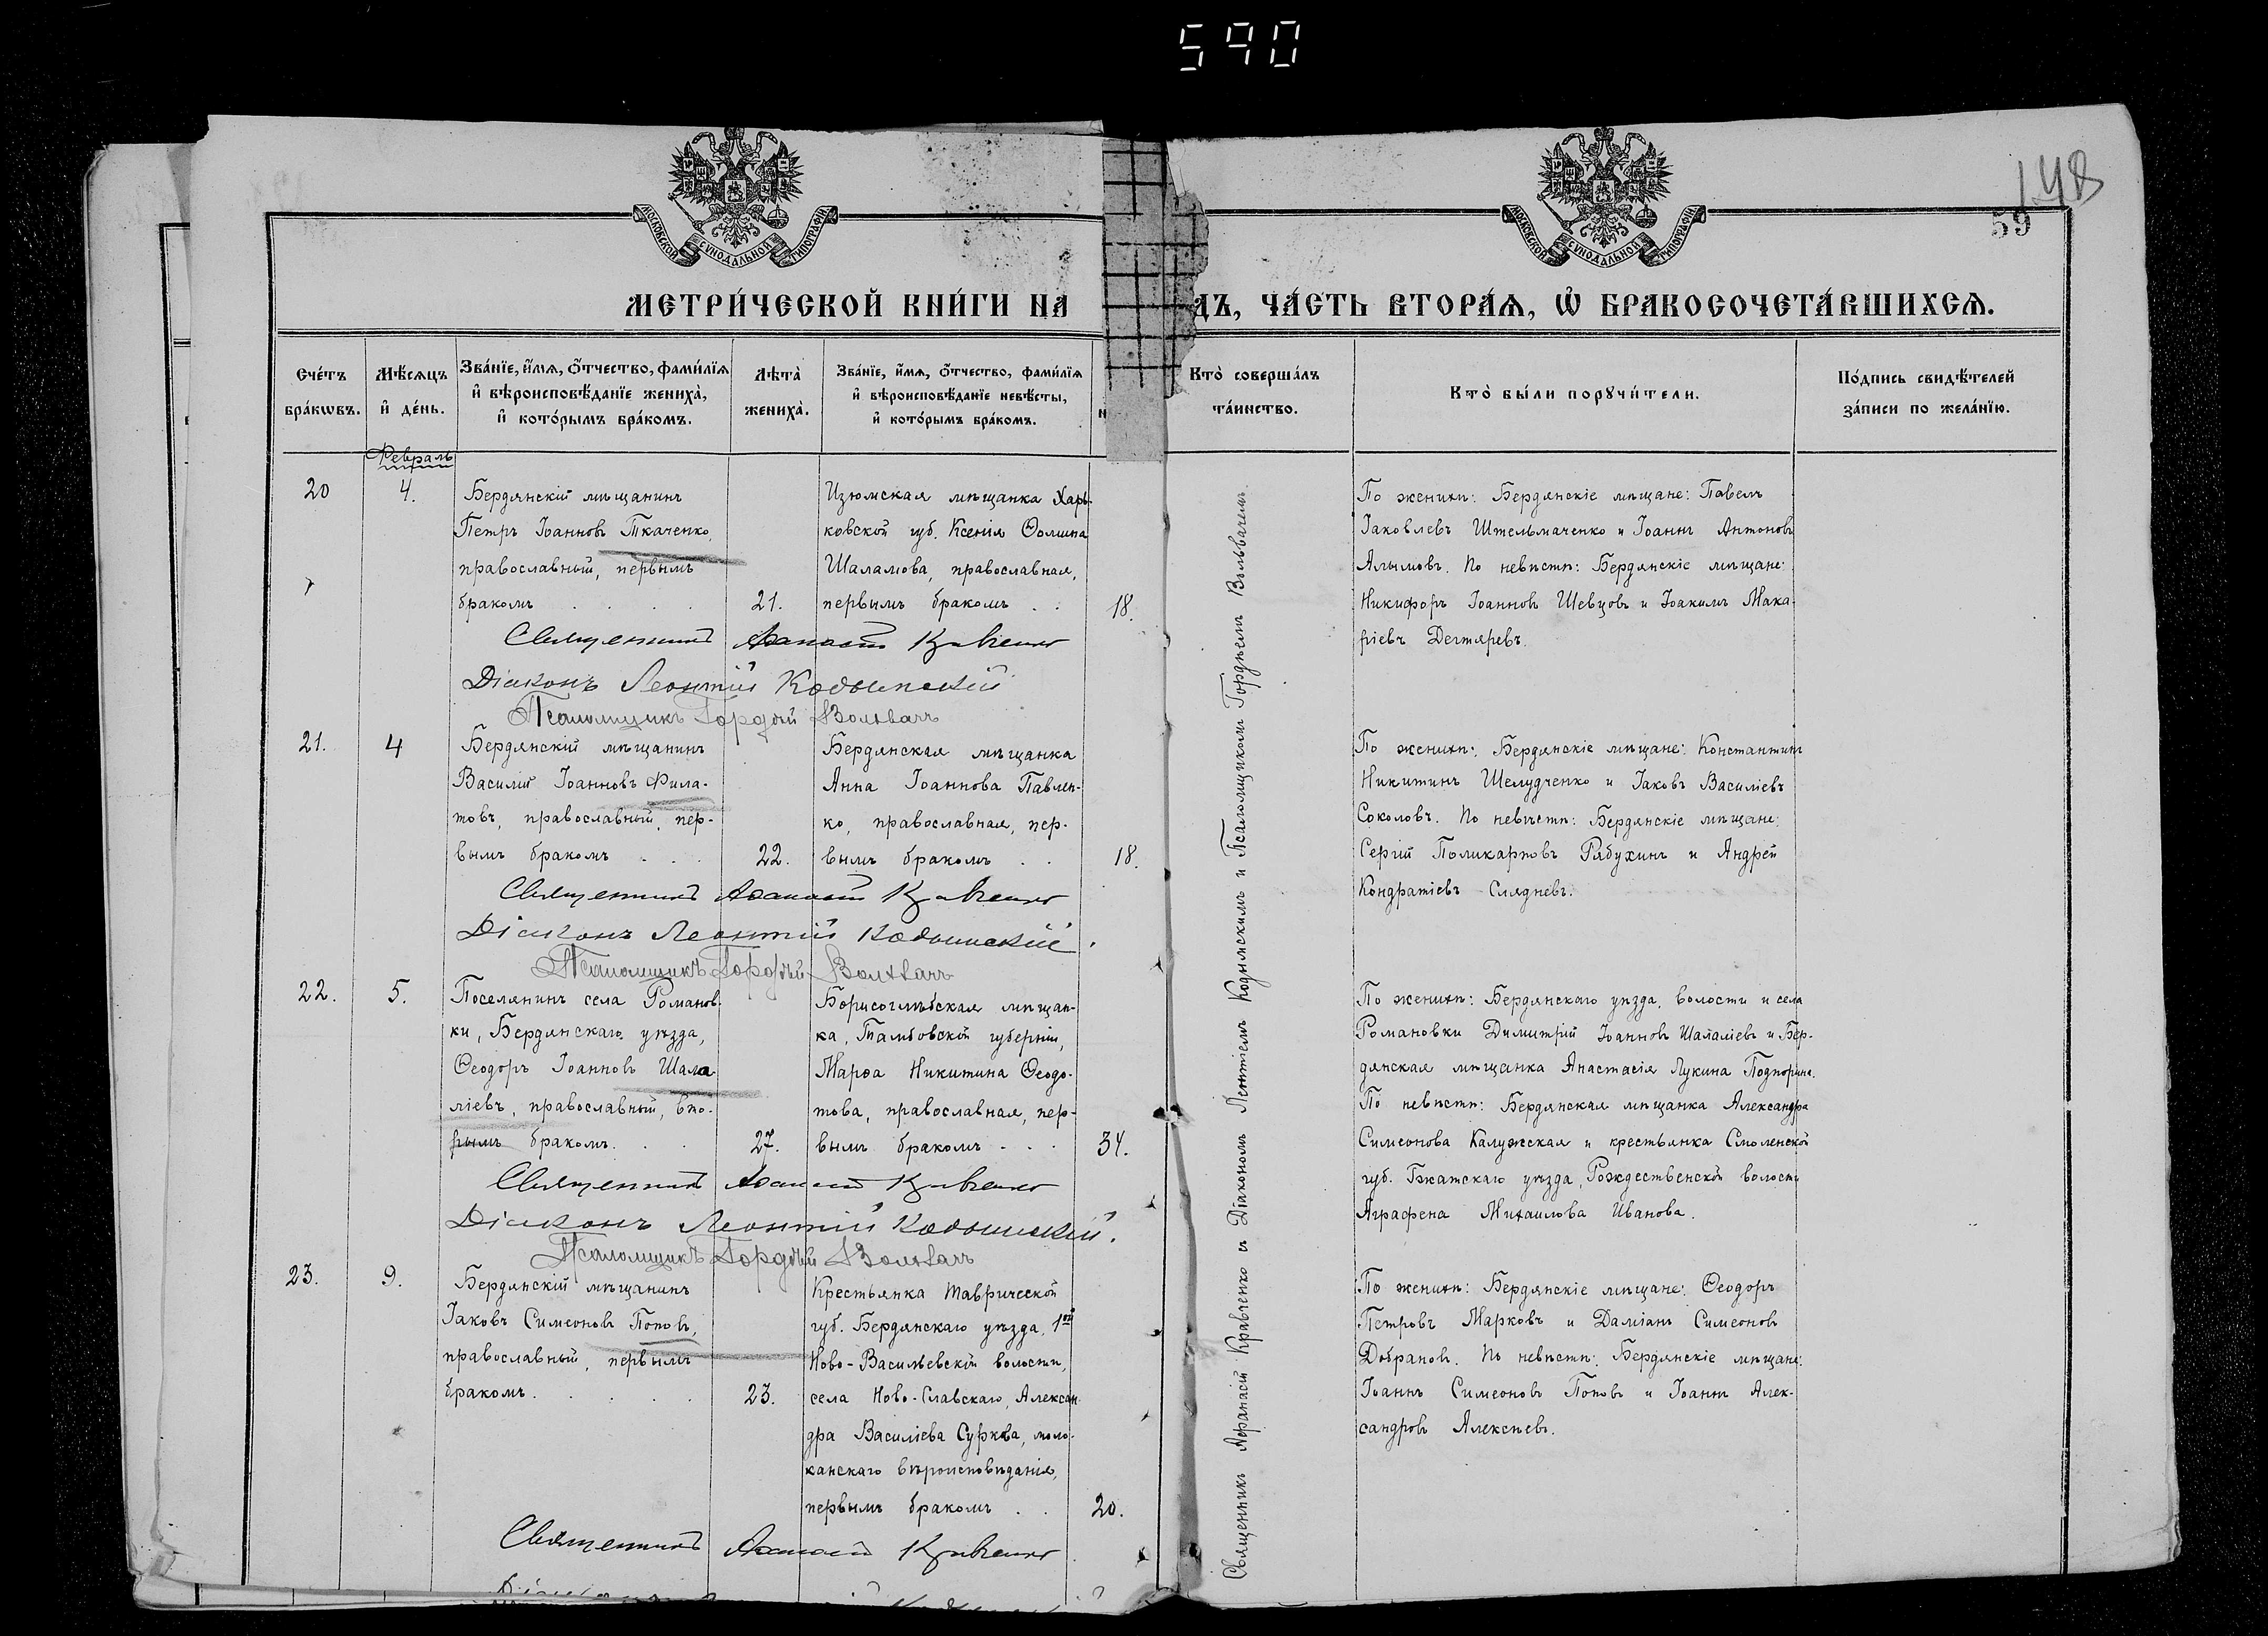 590
148
59
МОСКОВСКОЙ СѴНОДАЛЬНОЙ ТИПОГРАФІИ
МОСКОВСКОЙ СѴНОДАЛЬНОЙ ТИПОГРАФІИ
МЕТРИ́ЧЕСКОЙ КНИ́ГИ НА
ДЪ, ЧА́СТЬ ВТОРА́Ѧ, Ѡ҆ БРАКОСОЧЕТА́ВШИХСѦ.
Сче́тъ
бра́кѡвъ.
Мѣ́сѧцъ
и҆ де́нь.
Зва́нїе, и҆́мѧ, ѻ҆́тчество, фами́лїѧ
и҆ вѣроисповѣ́данїе жениха̀,
и҆ кото́рымъ бра́комъ.
Лѣта̀
жениха̀.
Зва́нїе, и҆́мѧ, ѻ҆́тчество, фами́лїѧ
и҆ вѣроисповѣ́данїе невѣ́сты,
и҆ кото́рымъ бра́комъ.
Кто̀ соверша́лъ
та́инство.
Кто̀ бы́ли порꙋчи́тели.
По́дпись свидѣ́телей
за́писи по жела́нїю.
Февраль
20
4.
Бердянскій мѣщанинъ
Петръ Іоанновъ Ткаченко,
православный, первымъ
бракомъ . . . .
21.
Изюмская мѣщанка Харь-
ковской губ. Ксенія Ѳомина
Шаламова, православная,
первымъ бракомъ . .
18.
По женихѣ: Бердянскіе мѣщане: Павелъ
Іаковлевъ Штельмаченко и Іоаннъ Антоновъ
Алымовъ. По невѣстѣ: Бердянскіе мѣщане:
Никифоръ Іоанновъ Шевцовъ и Іоакимъ Мака-
ріевъ Дегтяревъ.
Священникъ Аѳанасій Кравченко
Діаконъ Леонтій Кодымскій
Псаломщикъ Гордѣй Вольвачъ
21.
4
Бердянскій мѣщанинъ
Василій Іоанновъ Фила-
товъ, православный, пер-
вымъ бракомъ . . .
22.
Бердянская мѣщанка
Анна Іоаннова Павлен-
ко, православная, пер-
вымъ бракомъ . .
18.
По женихѣ: Бердянскіе мѣщане: Константинъ
Никитинъ Шелудченко и Іаковъ Василіевъ
Соколовъ. По невѣстѣ: Бердянскіе мѣщане:
Сергій Поликарповъ Рябухинъ и Андрей
Кондратіевъ Слядневъ.
Священникъ Аѳанасій Кравченко
Діаконъ Леонтій Кодымскій.
Псаломщикъ Гордѣй Вольвачъ
22.
5.
Поселянинъ села Романов-
ки, Бердянскаго уѣзда,
Ѳеодоръ Іоанновъ Шала-
ліевъ, православный, вто-
рымъ бракомъ. . .
27.
Борисоглѣбская мѣщан-
ка, Тамбовской губерніи,
Марѳа Никитина Ѳеодо-
това, православная, пер-
вымъ бракомъ . . .
34.
По женихѣ: Бердянскаго уѣзда, волости и села
Романовки Димитрій Іоанновъ Шалаліевъ и Бер-
дянская мѣщанка Анастасія Лукина Подпорина.
По невѣстѣ: Бердянская мѣщанка Александра
Симеонова Калужская и крестьянка Смоленской
губ. Гжатскаго уѣзда, Рождественской волости
Аграфена Михаилова Иванова.
Священникъ Аѳанасій Кравченко
Діаконъ Леонтій Кодымскій.
Псаломщикъ Гордѣй Вольвачъ
23.
9.
Бердянскій мѣщанинъ
Іаковъ Симеоновъ Поповъ,
православный, первымъ
бракомъ. . . . .
23.
Крестьянка Таврической
губ. Бердянскаго уѣзда, 1ой
Ново-Васильевской волости,
села Ново-Славскаго, Алексан-
дра Василіева Суркова, моло-
канскаго вѣроисповѣданія,
первымъ бракомъ . .
20.
По женихѣ: Бердянскіе мѣщане: Ѳеодоръ
Петровъ Марковъ и Даміанъ Симеоновъ
Добрановъ. По невѣстѣ: Бердянскіе мѣщане:
Іоаннъ Симеоновъ Поповъ и Іоаннъ Алек-
сандровъ Алексѣевъ.
Священникъ Аѳанасій Кравченко
Священникъ Аѳанасій Кравченко съ Діакономъ Леонтіемъ Кодымскимъ и Псаломщикомъ Гордѣемъ Вольвачемъ.